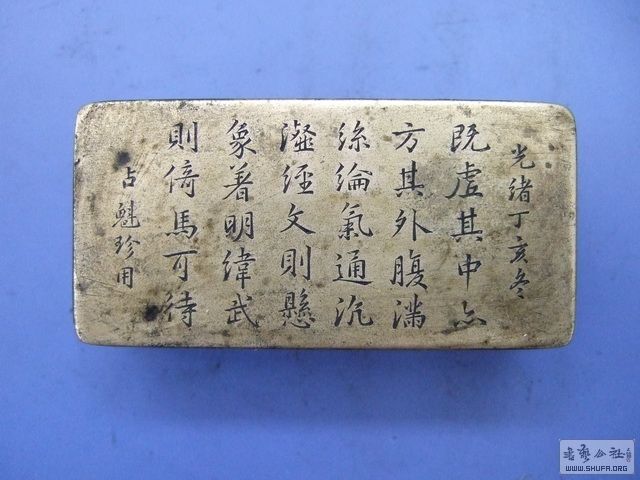 光緒丁亥冬
既虛其中亦
方其外腹滿
絲綸氣通沆
瀣經文則懸
象著明緯武
則倚馬可待
占魁珍用
WWW.SHUFA.ORG